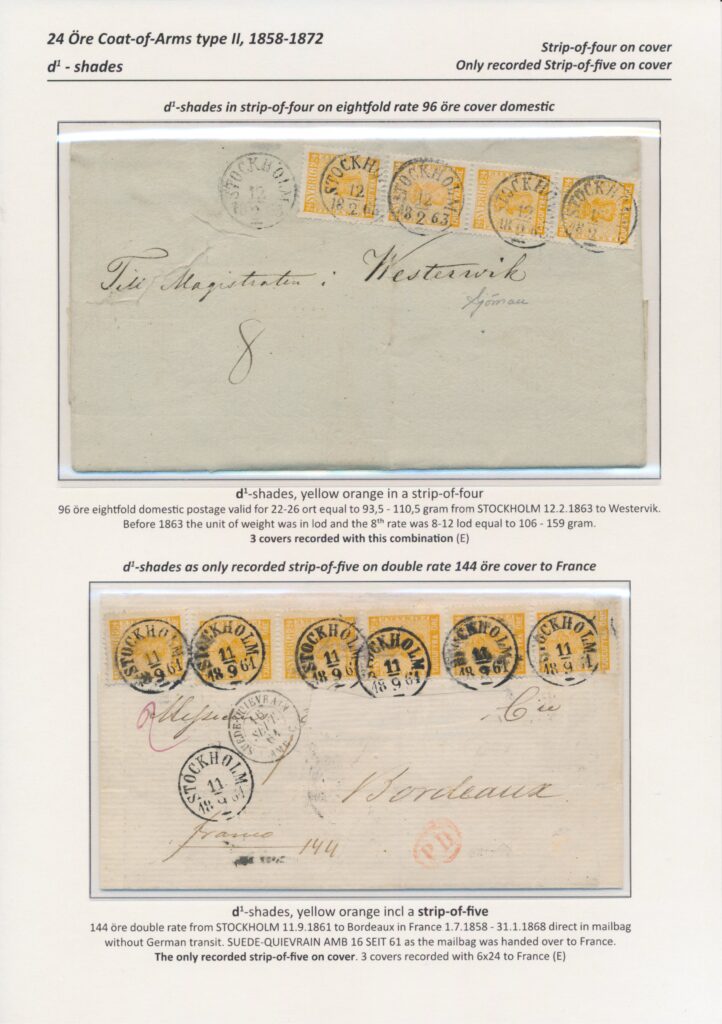 24 Öre Coat-of-Arms type II, 1858-1872
d¹ - shades
Strip-of-four on cover
Only recorded Strip-of-five on cover
d¹-shades in strip-of-four on eightfold rate 96 öre cover domestic
STOCKHOLM 12 2
STOCKHOLM 12 18 2 63
STOCKHOLM 12 18 2 63
STOCKHOLM 12 18 2
STOCKHOLM
SVERIGE
Till Magistraten i Westerwik
8
d¹-shades, yellow orange in a strip-of-four
96 öre eightfold domestic postage valid for 22-26 ort equal to 93,5 - 110,5 gram from STOCKHOLM 12.2.1863 to Westervik.
Before 1863 the unit of weight was in lod and the 8th rate was 8-12 lod equal to 106 - 159 gram.
3 covers recorded with this combination (E)
d¹-shades as only recorded strip-of-five on double rate 144 öre cover to France
STOCKHOLM 11 18 9 61
STOCKHOLM 11 18 9 61
STOCKHOLM 11 18 9 61
STOCKHOLM 11 18 9 61
STOCKHOLM 11 18 9 61
STOCKHOLM 11 18 9 61
Cie
STOCKHOLM 11 18 9 61
Bordeaux
franco 144
PD
d¹-shades, yellow orange incl a strip-of-five
144 öre double rate from STOCKHOLM 11.9.1861 to Bordeaux in France 1.7.1858 - 31.1.1868 direct in mailbag
without German transit. SUEDE-QUIEVRAIN AMB 16 SEIT 61 as the mailbag was handed over to France.
The only recorded strip-of-five on cover. 3 covers recorded with 6x24 to France (E)